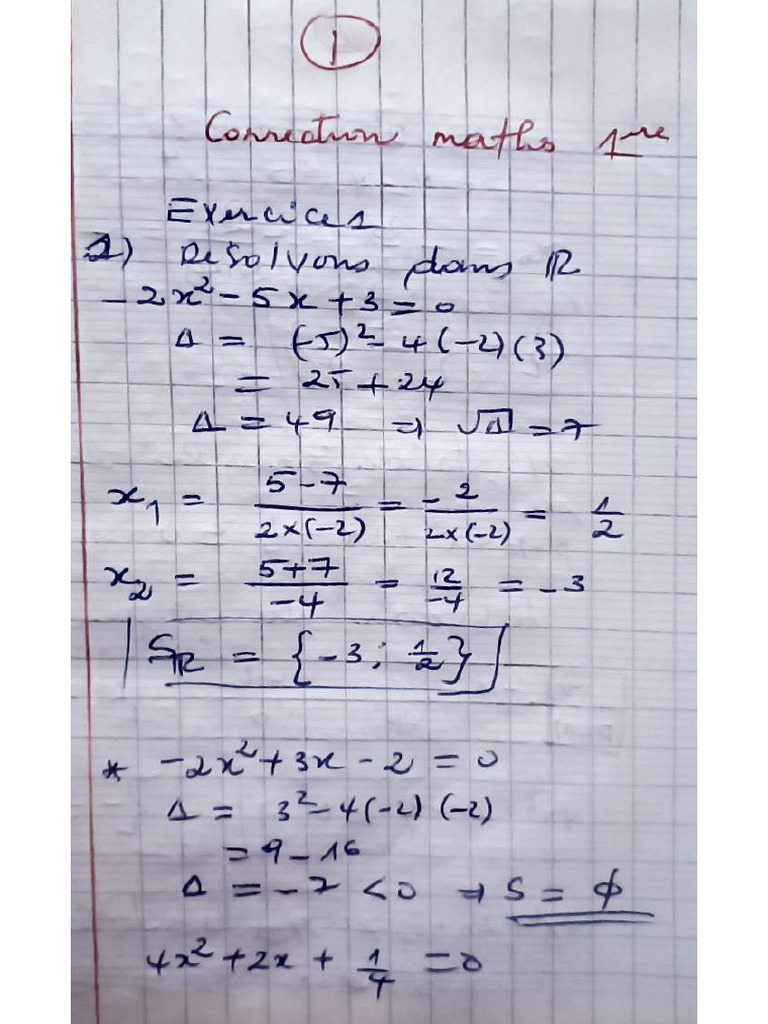 1
Correction maths 1ère
Exercice 1
1) Resolvons dans ℝ
-2x² - 5x + 3 = 0
Δ = (-5)² - 4(-2)(3)
= 25 + 24
Δ = 49 ⇒ √Δ = 7
x₁ = (5-7)/(2×(-2)) = -2/(2×(-2)) = 1/2
x₂ = (5+7)/(-4) = 12/(-4) = -3
S_ℝ = {-3; 1/2}
* -2x² + 3x - 2 = 0
Δ = 3² - 4(-2)(-2)
= 9 - 16
Δ = -7 < 0 ⇒ S = ϕ
4x² + 2x + 1/4 = 0